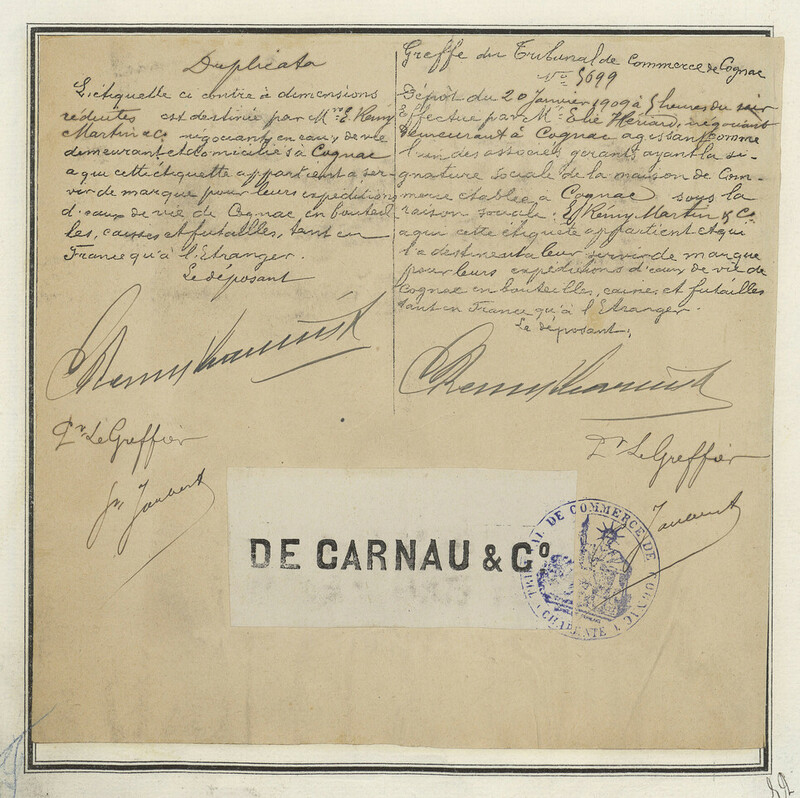 Duplicata
L'étiquette ci contre à dimensions
réduites est destinée par Mrs E. Rémy
Martin & Co négociants en eaux de vie
demeurant et domiciliés à Cognac
a qui cette étiquette appartient à ser-
vir de marque pour leurs expéditions
d'eaux de vie de Cognac, en bouteil
les, caisses et futailles, tant en
France qu'à l'Etranger.
Le déposant
E Remy Martin & Co
Pr Le Greffier
Greffe du Tribunal de Commerce de Cognac
No 5699
Dépôt du 20 Janvier 1909 à 5 heures du soir
Effectué par Mr Elie Hériard, négociant
demeurant à Cognac agissant comme
l'un des associés gérants ayant la si-
gnature sociale de la maison de Com-
merce etablie à Cognac sous la
raison sociale: E. Rémy Martin & Co
a qui cette étiquete appartient et qui
la destinent a leur servir de marque
pour leurs expéditions d'eaux de vie de
Cognac en bouteilles, caisses et futailles
tant en France qu'à l'Etranger.
Le déposant,
E Remy Martin & Co
Pr Le Greffier
DE CARNAU & Co
TRIBUNAL DE COMMERCE DE COGNAC
CHARENTE